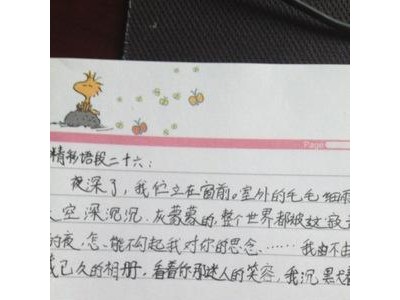 Page
精彩语段二十六：
夜深了，我伫立在窗前。室外的毛毛细雨
空深沉沉、灰蒙蒙的，整个世界都被这寂
的夜，怎能不勾起我对你的思念……我由不由
我已久的相册，看着你那迷人的笑容，我沉默